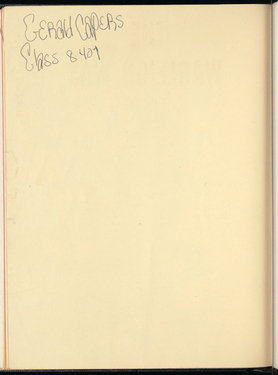 Gerald Capers
Class 8407